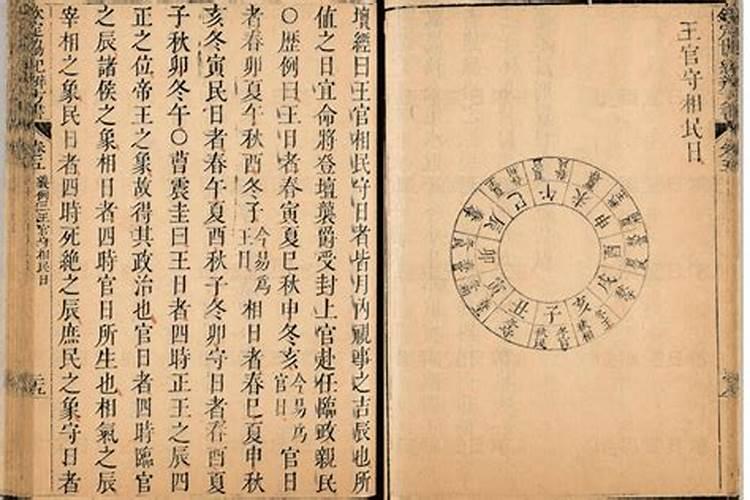 王官守相民日
午
未
申
酉
戌
亥
子
丑
寅
卯
辰
巳
壇經曰王官相民守日者皆月內視事之吉辰也所
值之日宜命將登壇襲爵受封上官赴任臨政親民
○歷例曰王日者春寅夏巳秋申冬亥今易為官日官日
者春卯夏午秋酉冬子今易為王日相日者春巳夏申秋
亥冬寅民日者春午夏酉秋子冬卯守日者春酉夏
子秋卯冬午○曹震圭曰王日者四時正王之辰四
正之位帝王之象故得其政治也官日者四時臨官
之辰諸侯之象相日者四時官日所生也相氣之辰
宰相之象民日者四時死絕之辰庶民之象守日者
欽定協紀辨方書
卷五
義例三王官守相民日